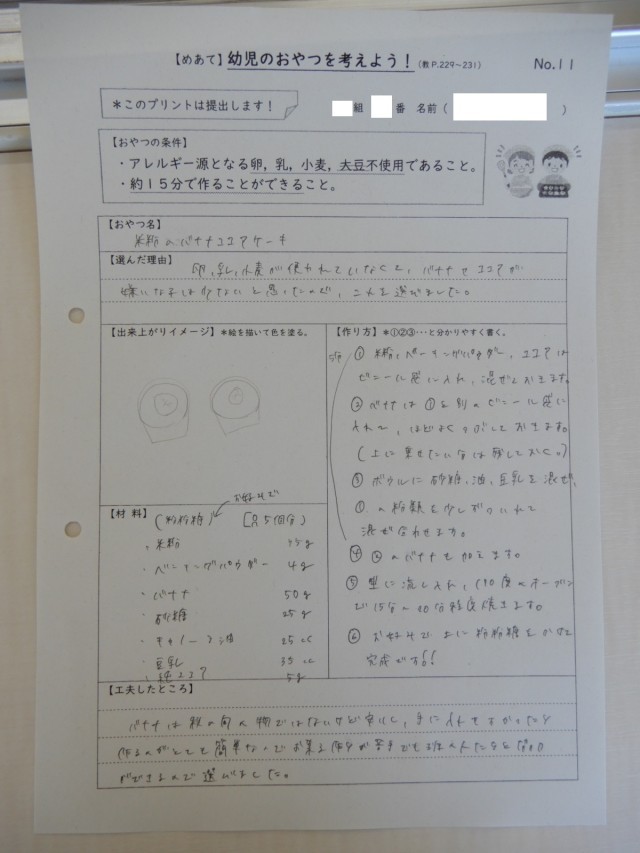 【めあて】幼児のおやつを考えよう！（教P.229～231） No.11
＊このプリントは提出します！
組 番 名前（ ）
【おやつの条件】
・アレルギー源となる卵，乳，小麦，大豆不使用であること。
・約１５分で作ることができること。
【おやつ名】
米粉のバナナココアケーキ
【選んだ理由】
卵、乳、小麦が使われていなくて、バナナやココアが
嫌いな子は少ないと思ったので、これを選びました。
【出来上がりイメージ】＊絵を描いて色を塗る。
【作り方】＊①②③…と分かりやすく書く。
① 米粉、ベーキングパウダー、ココアは
ビニール袋に入れ、混ぜておきます。
② バナナは①と別のビニール袋に
入れて、ほどよくつぶしておきます。
(上に乗せたい分は残しておく。)
③ ボウルに砂糖、油、豆乳を混ぜ、
①の粉類を少しずつ入れて
混ぜ合わせます。
④ ②のバナナを加えます。
⑤ 型に流し入れ、180度のオーブン
で15分～20分程度焼きます。
⑥ お好みで上に粉砂糖をかけて
完成です!!
【材 料】 (粉砂糖) お好みで
・米粉
・ベーキングパウダー 4g
・バナナ 50g
・砂糖 25g
・キャノーラ油 25cc
・豆乳 35cc
・純ココア 5g
【工夫したところ】
バナナは秋の旬の物ではないけど安いし、手に入れやすかったり
作るのがとても簡単なのでお菓子作りが苦手でも
ができるので選びました。